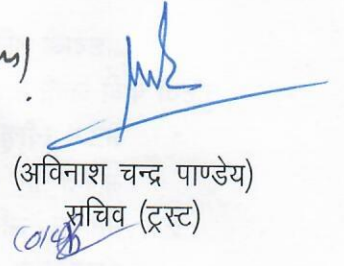 (अविनाश चन्द्र पाण्डेय)
सचिव (ट्रस्ट)